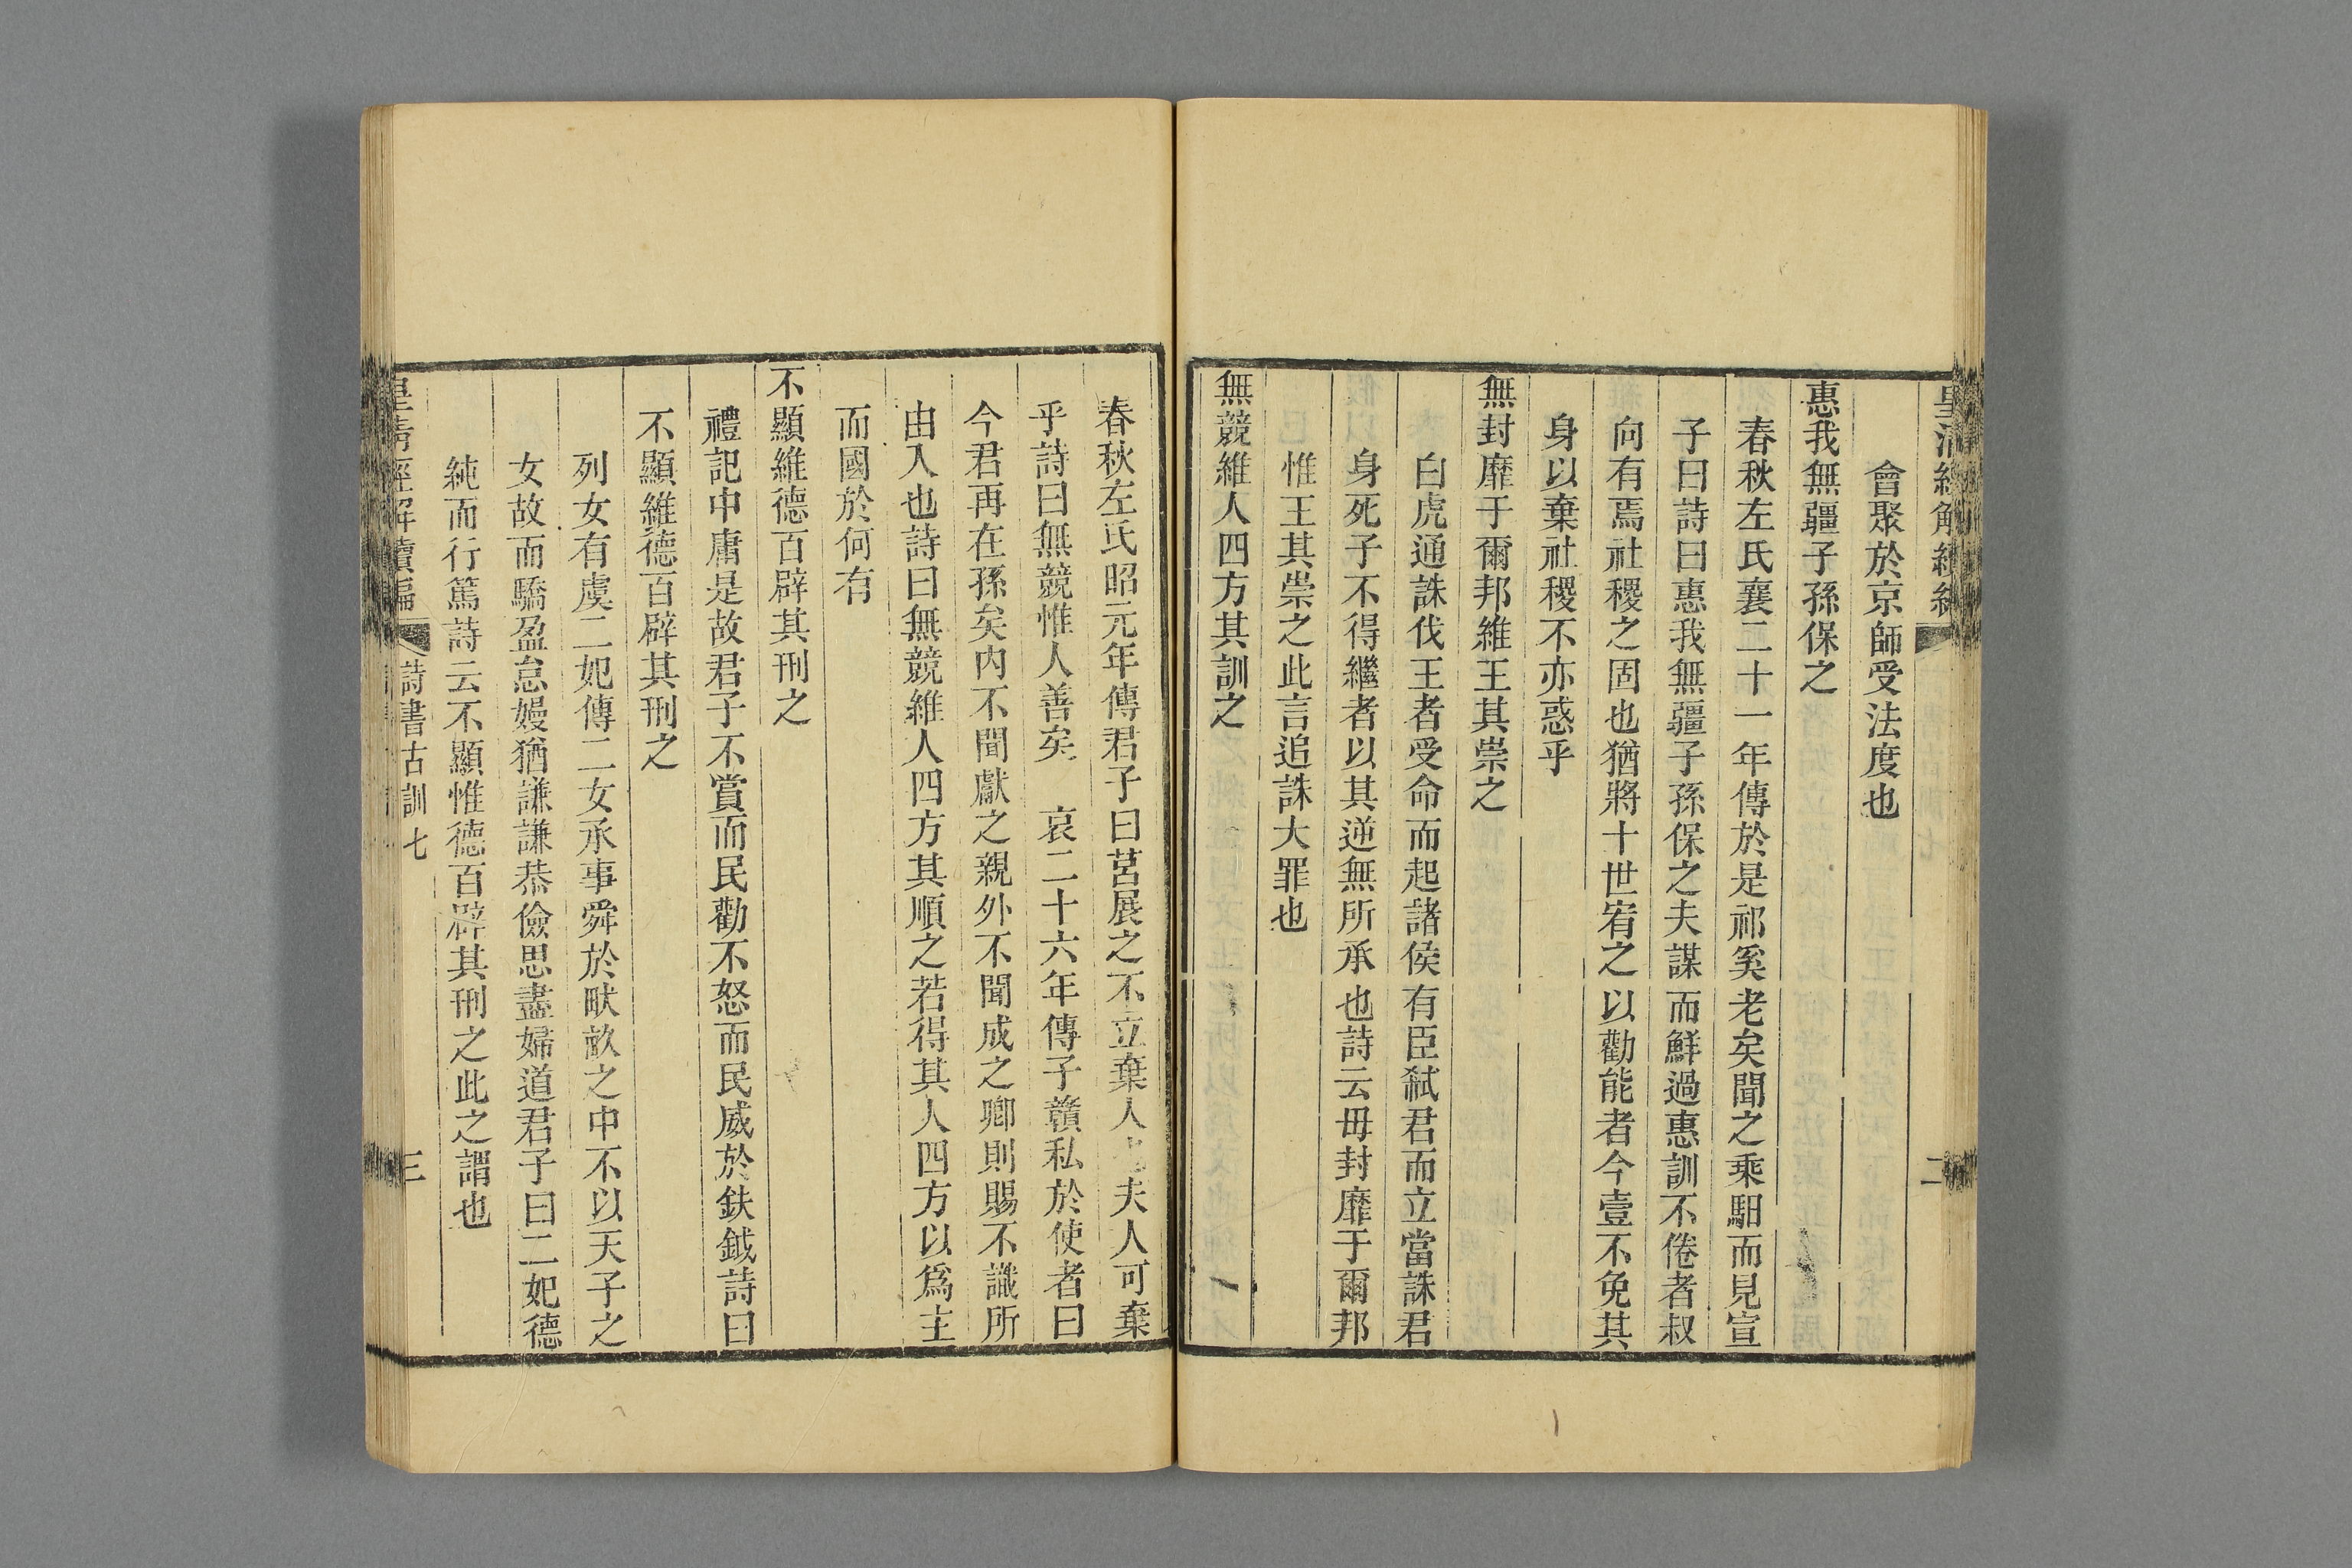 會聚於京師受法度也
惠我無疆子孫保之
春秋左氏襄二十一年傳於是祁奚老矣聞之乘馹而見宣
子曰詩曰惠我無疆子孫保之夫謀而鮮過惠訓不倦者叔
向有焉社稷之固也猶將十世宥之以勸能者今壹不免其
身以棄社稷不亦惑乎
無封靡于爾邦維王其崇之
白虎通誅伐王者受命而起諸侯有臣弑君而立當誅君
身死子不得繼者以其逆無所承也詩云毋封靡于爾邦
惟王其崇之此言追誅大罪也
無競維人四方其訓之
二
春秋左氏昭元年傳君子曰莒展之不立棄人夫人可棄
乎詩曰無競惟人善矣 哀二十六年傳子贛私於使者曰
今君再在孫矣內不聞獻之親外不聞成之卿則賜不識所
由入也詩曰無競維人四方其順之若得其人四方以爲主
而國於何有
不顯維德百辟其刑之
禮記中庸是故君子不賞而民勸不怒而民威於鈇鉞詩曰
不顯維德百辟其刑之
列女有虞二妃傳二女承事舜於畎畝之中不以天子之
女故而驕盈怠嫚猶謙謙恭儉思盡婦道君子曰二妃德
純而行篤詩云不顯惟德百辟其刑之此之謂也
皇清經解續編 詩書古訓七 三